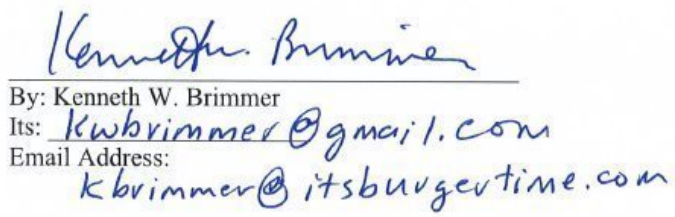 Kenneth W. Brimmer
By: Kenneth W. Brimmer
Its: kwbrimmer@gmail.com
Email Address:
kbrimmer@itsburgertime.com